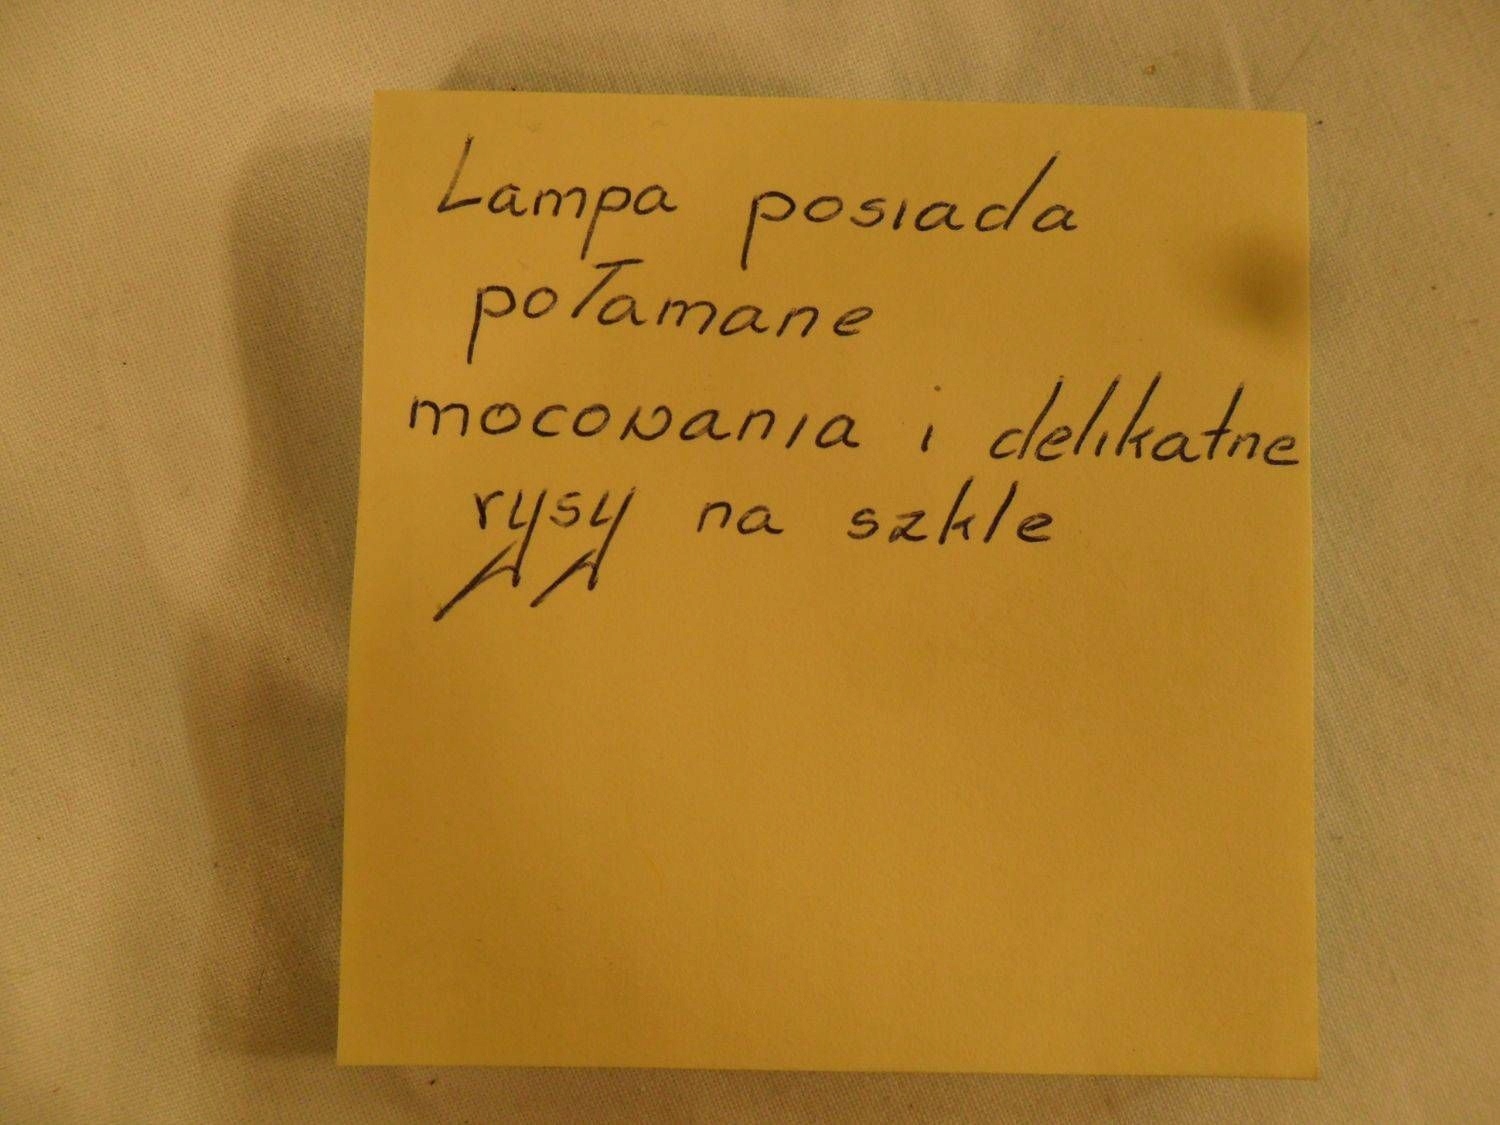 Lampa posiada
połamane
mocowania i delikatne
rysy na szkle